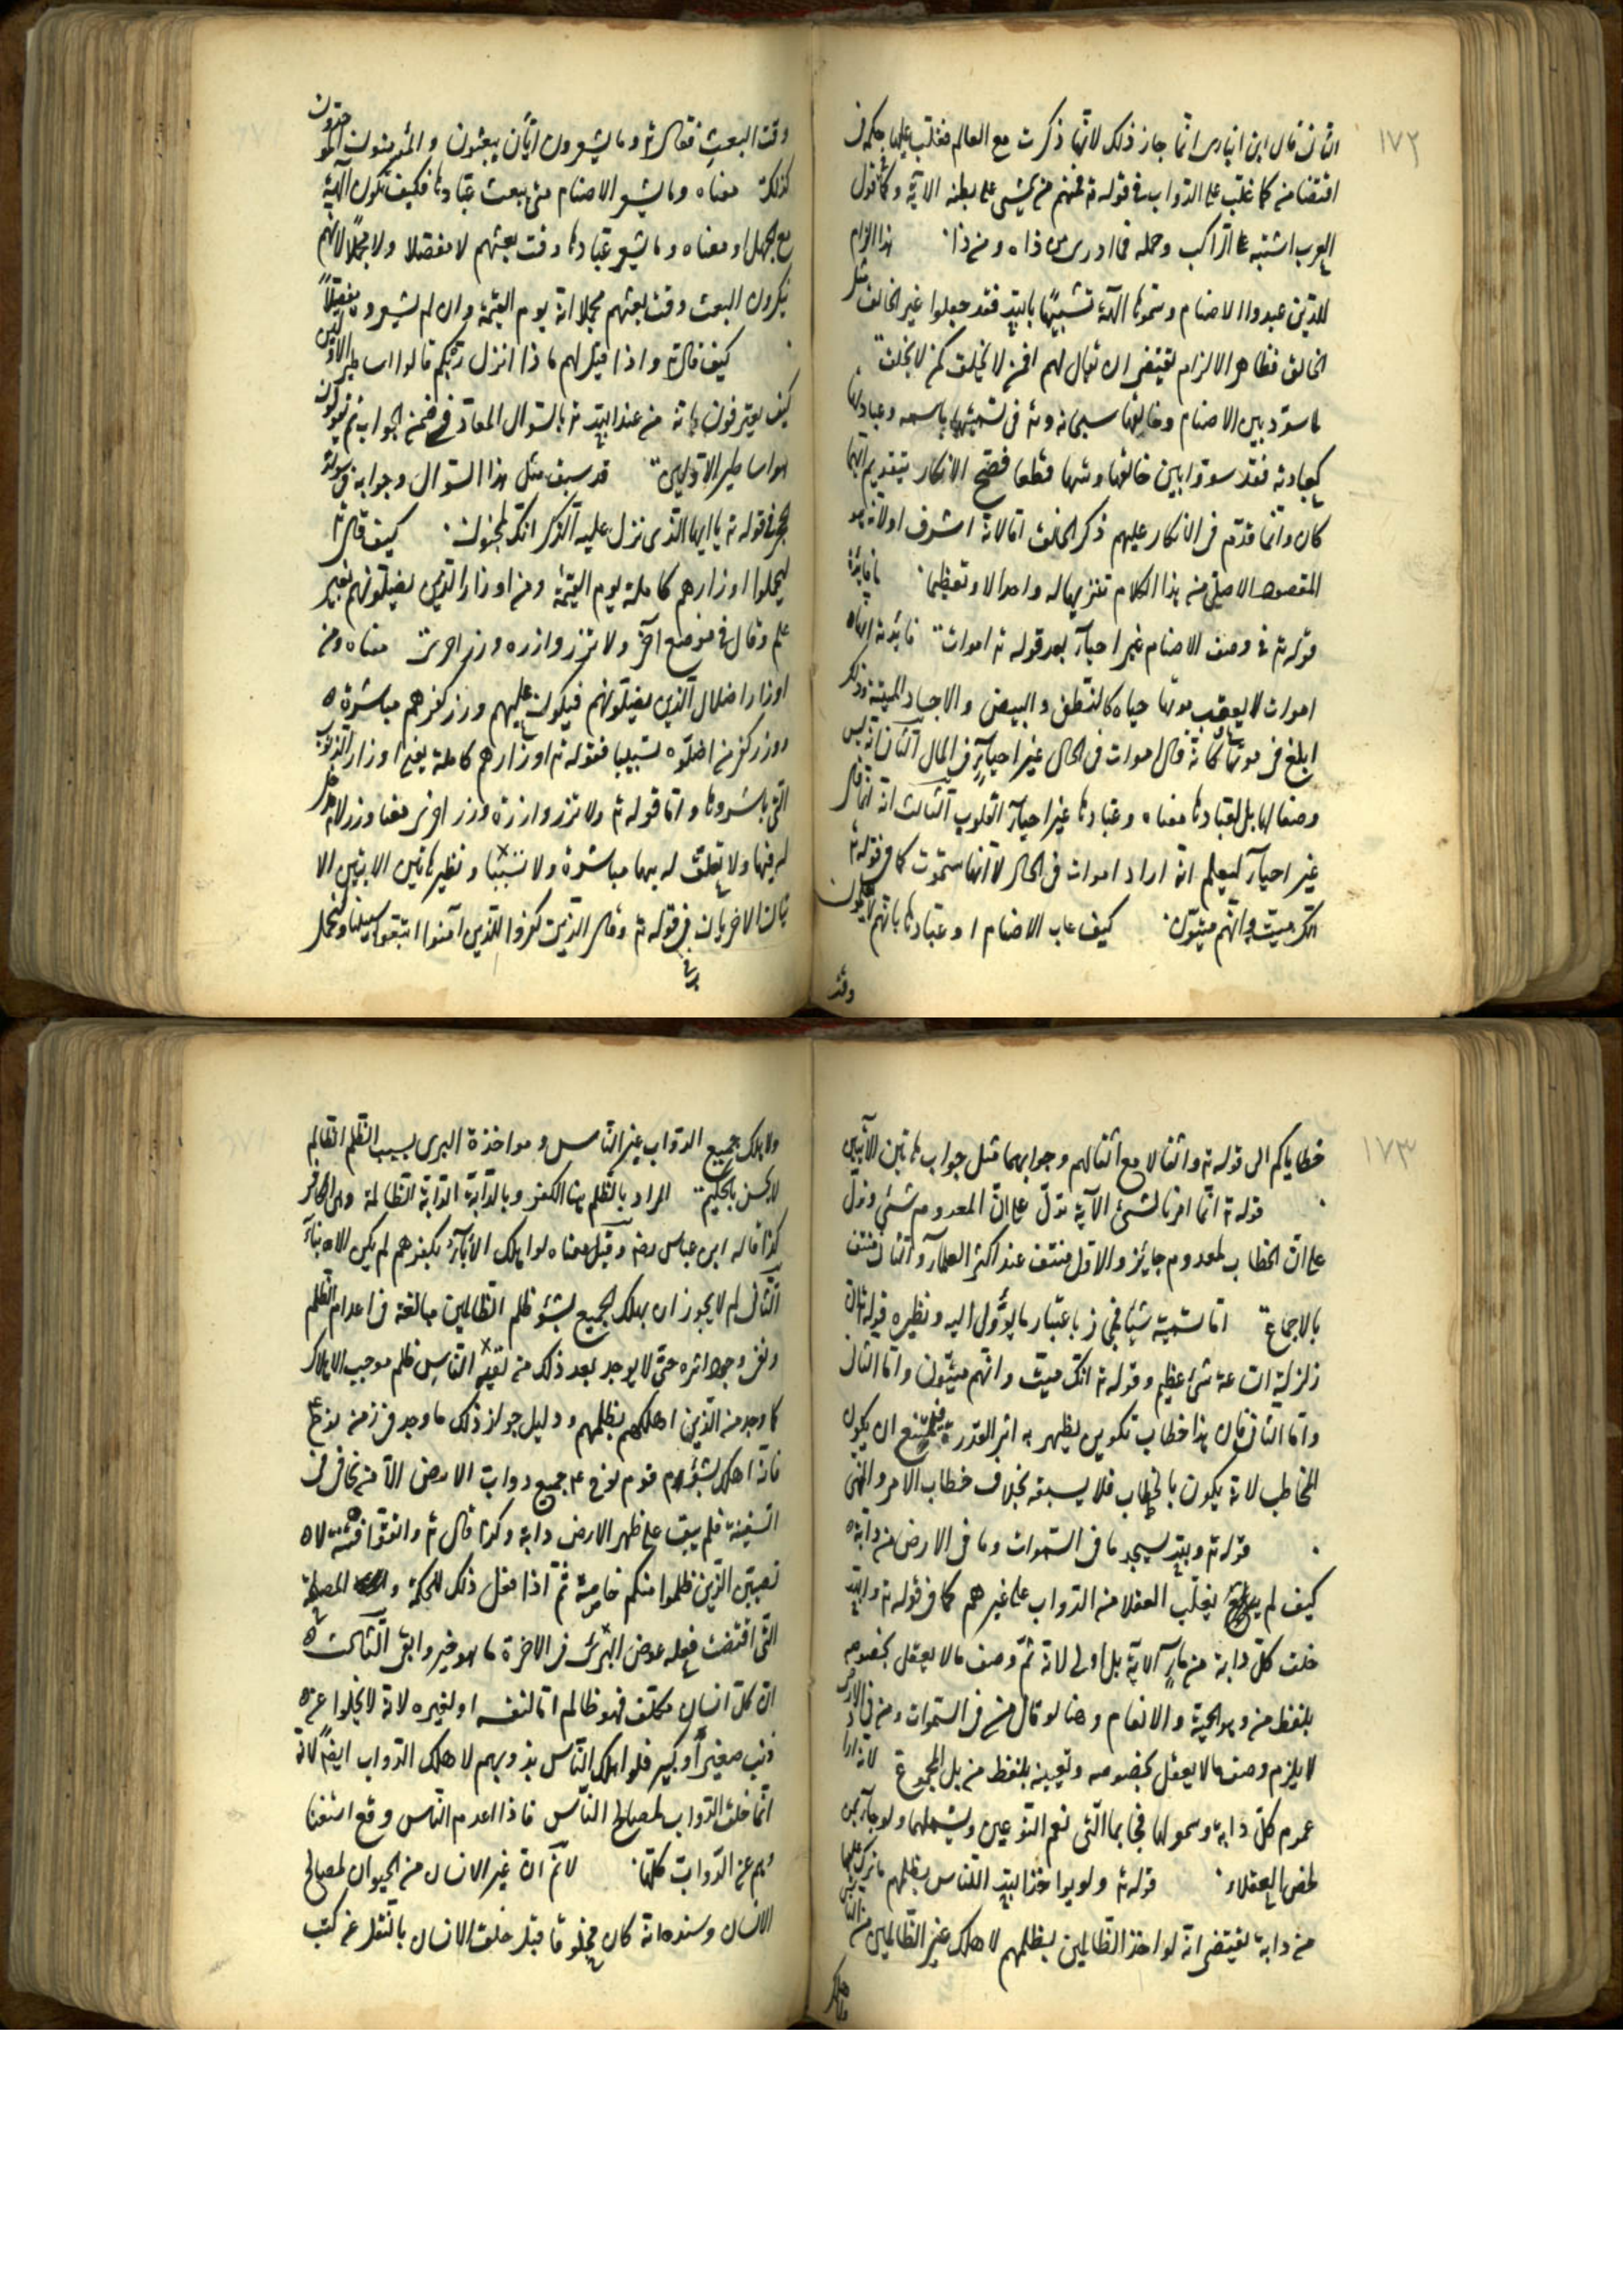 ١٧٢
الثانى قال ابن الانبارى انما جاز ذلك لانها ذكرت مع العالم فغلب عليها حكمه فى
اقتضا من كما غلب على الدواب فى قوله ته فمنهم من يمشى على بطنه الاية وكما تقول
العرب اشتبه على الراكب وحمله فما ادرى من ذاه ومن ذا هذا الزام
للذين عبدوا الاصنام وسموها آلهة تشبيها بالله فقد جعلوا غير الخالق مثل
الخالق فظاهر الالزام يقتضى ان يقال لهم افمن لا يخلق كمن لا يخلق
لما سووا بين الاصنام وخالقها سبحانه وته فى تسميتها باسمه وعبادتها
كعبادته فقد سووا بين خالقها وبينها قطعا فصح الانكار بتقديم ايهما
كان وانما قدم فى الانكار عليهم ذكر الخلق اما لانه اشرف او لانه هو
المقصود الاصلى من هذا الكلام تنزيها له واجلالا وتعظيما ما فايدة
قوله ته فى وصف الاصنام غير احيآء بعد قوله ته اموات فايدته انها
اموات لا يعقب موتها حياه كالنطف والبيض والاجساد الميتة وذلك
ابلغ فى موتها كانه قال اموات فى الحال غير احيآء فى المال الثانى انه ليس
وصفا لها بل لعبادها معناه وعبادها غير احيآء القلوب الثالث انه انما قال
غير احيآء ليعلم انه اراد اموات فى الحال لا انها ستموت كما فى قوله ته
انك ميت وانهم ميتون كيف عاب الاصنام او عبادها بانهم لا يعلمون
وقت
وقت البعث فقال ته وما يشعرون ايان يبعثون والمؤمنون الموحدون
كذلك معناه وما يشعر الاصنام متى يبعث عبادها فكيف تكون آلهة
مع الجهل او معناه وما يشعر عبادها وقت بعثهم لا مفصلا ولا مجملا لانهم
ينكرون البعث وقت بعثهم مجملا انه يوم القيمة وان لم يشعروه مفصلا
كيف قال ته واذا قيل لهم ما ذا انزل ربكم قالوا اساطير الاولين
كيف يعترفون بانه من عند الله ته بالسوال المعاد فى ضمن الجواب ثم يقولون
هو اساطير الاولين قد سبق مثل هذا السوال وجوابه فى سورة
الحجر فى قوله ته يا ايها الذى نزل عليه الذكر انك لمجنون كيف قال ته
ليحملوا اوزارهم كاملة يوم القيمة ومن اوزار الذين يضلونهم بغير
علم وقال فى موضع آخر ولا تزر وازرة وزر اخرى معناه ومن
اوزار اضلال الذين يضلونهم فيكون عليهم وزر كفرهم مباشرة
ووزر كفر من اضلوه تسبيبا فقوله ته اوزارهم كاملة يعنى اوزار الذنوب
التى باشروها واما قوله ته ولا تزر وازرة وزر اخرى معنا وزر لا مدخل
له فيها ولا تعلق له بها مباشرة ولا تسببا ونظير هاتين الايتين الا
يتان الاخريان فى قوله ته وقال الذين كفروا للذين آمنوا اتبعوا سبيلنا ولنحمل
١٧٣
خطاياكم الى قوله ته واثقالا مع اثقالهم وجوابهما مثل جواب هاتين الآيتين
قوله ته انما امرنا لشئ الآية تدل على ان المعدوم شئ وتدل
على ان الخطاب لمعدوم جايز والاول منتف عند اكثر العلمآء والثانى منتف
بالاجماع اما تسميته شيا فمجاز باعتبار ما يؤول اليه ونظيره قوله ته ان
زلزلة الساعة شئ عظيم وقوله ته انك ميت وانهم ميتون واما الثانى
واما الثانى فان هذا خطاب تكوين يظهر به اثر القدرة فيمتنع ان يكون
المخاطب لانه يكون بالخطاب فلا يسبقه بخلاف خطاب الامر والنهى
قوله ته ولله يسجد ما فى السموات وما فى الارض من دابة
كيف لم يغلب العقلا من الدواب على غيرهم كما فى قوله ته والله
خلق كل دابة من مآء الآية بل اولى لانه ثم وصف ما لا يعقل بخصوصه
بلفظ من وهو الحية والانعام وهنا لو قال من فى السموات ومن فى الارض
لا يلزم وصف ما لا يعقل بخصوصه وتعيينه بلفظ من بل المجموع لانه اراد
عموم كل دابة وشمولها فجا بما التى تعم النوعين ويشملهما ولو جآء بمن
لخص العقلاء قوله ته ولو يواخذ الله الناس بظلمهم ما ترك عليها
من دابة يقتضى انه لو اخذ الظالمين بظلمهم لاهلك غير الظالمين من الناس
ولاهلك
ولاهلك جميع الدواب غير الناس ومواخذة البرى بسبب الظلم الظالم
لا يحسن بالحكيم المراد بالظلم هنا الكفر وبالدابة الدابة الظالمة وهى الكافر
كذا قاله ابن عباس رضه وقيل معناه لو اهلك الابآء بكفرهم لم يكن الابنآء
الثانى لم لا يجوز ان يهلك الجميع بشؤم ظلم الظالمين مبالغة فى اعدام الظلم
ونفى وجود اثره حتى لا يوجد بعد ذلك من بقية الناس ظلم موجب للاهلاك
كما وجد من الذين اهلكهم بظلمهم ودليل جواز ذلك ما وجد فى زمن نوح ع
فانه اهلك بشؤم قوم نوح ع م جميع دواب الارض الا من نجا فى
السفينة فلم يبق على ظهر الارض دابة وكذا قال ته واتقوا فتنة لا
تصيبن الذين ظلموا منكم خاصة ثم اذا فعل ذلك للحكمة والمصلحة
التى اقتضت فعله عوض البرئ فى الاخرة ما هو خير وابقى الثالث
ان كل انسان مكلف فهو ظالم اما لنفسه او لغيره لانه لا يخلوا عن
ذنب صغير أو كبير فلو اهلك الناس بذنوبهم لاهلك الدواب ايضا لانه
انما خلق الدواب لمصالح الناس فاذا اعدم الناس وقع استغنا
وهم عن الدواب كلها لا نم ان غير الانسان من الحيوان لمصالح
الانسان وسنده انه كان مخلوقا قبل خلق الانسان بالنقل عن كتب